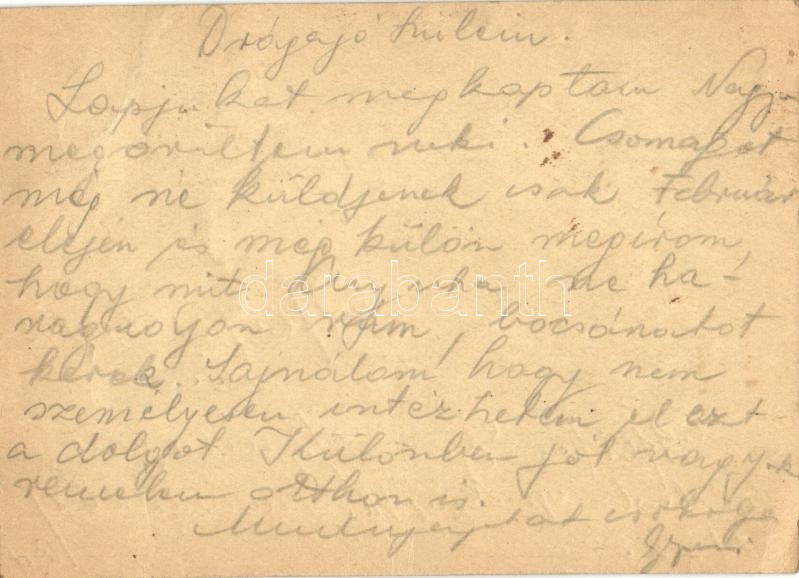 Drágajó szüleim.
Lapjukat megkaptam Nagy-
megörültem neki. Csomagot
még ne küldjenek csak Február
elején és még külön megírom,
hogy mit. ne ha-
ragudjon rám, bocsánatot
kérek. Sajnálom, hogy nem
személyesen intézhetem el ezt
a dolgot. Különben jól vagyok
remélem otthon is.
Mindnyájukat csókolja
Gyuri
darabanth